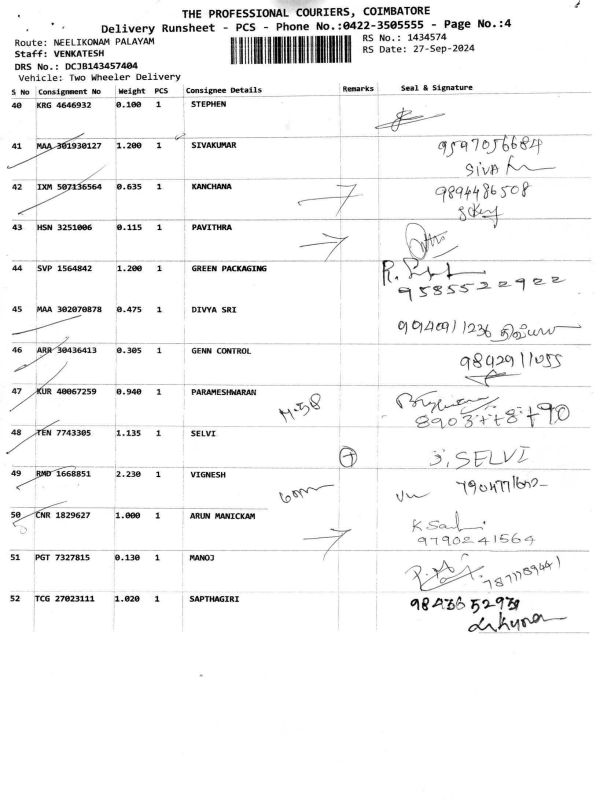 THE PROFESSIONAL COURIERS, COIMBATORE
Delivery Runsheet - PCS - Phone No.:0422-3505555 - Page No.:4
Route: NEELIKONAM PALAYAM
RS No.: 1434574
Staff: VENKATESH
RS Date: 27-Sep-2024
DRS No.: DCJB143457404
Vehicle: Two Wheeler Delivery
S No Consignment No Weight PCS Consignee Details Remarks Seal & Signature
40 KRG 4646932 0.100 1 STEPHEN
41 MAA 301930127 1.200 1 SIVAKUMAR 9597056684
SIVA
42 IXM 507136564 0.635 1 KANCHANA 9894486508
43 HSN 3251006 0.115 1 PAVITHRA
44 SVP 1564842 1.200 1 GREEN PACKAGING
9585522922
45 MAA 302070878 0.475 1 DIVYA SRI
46 ARR 30436413 0.305 1 GENN CONTROL 9842911055
47 KUR 40067259 0.940 1 PARAMESHWARAN
M-58
48 TEN 7743305 1.135 1 SELVI
SELVI
49 RMD 1668851 2.230 1 VIGNESH
50 CNR 1829627 1.000 1 ARUN MANICKAM
9790241564
51 PGT 7327815 0.130 1 MANOJ
52 TCG 27023111 1.020 1 SAPTHAGIRI